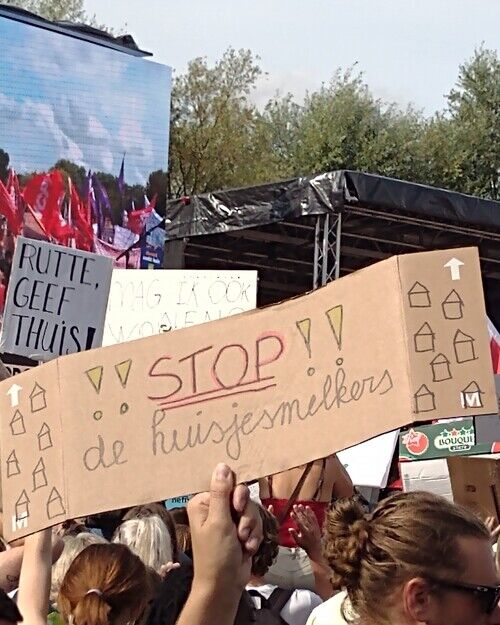 RUTTE,
GEEF
THUIS!
MAG IK OOK
WONEN
!! STOP !!
de huisjesmelkers
M
M
BOUQUET